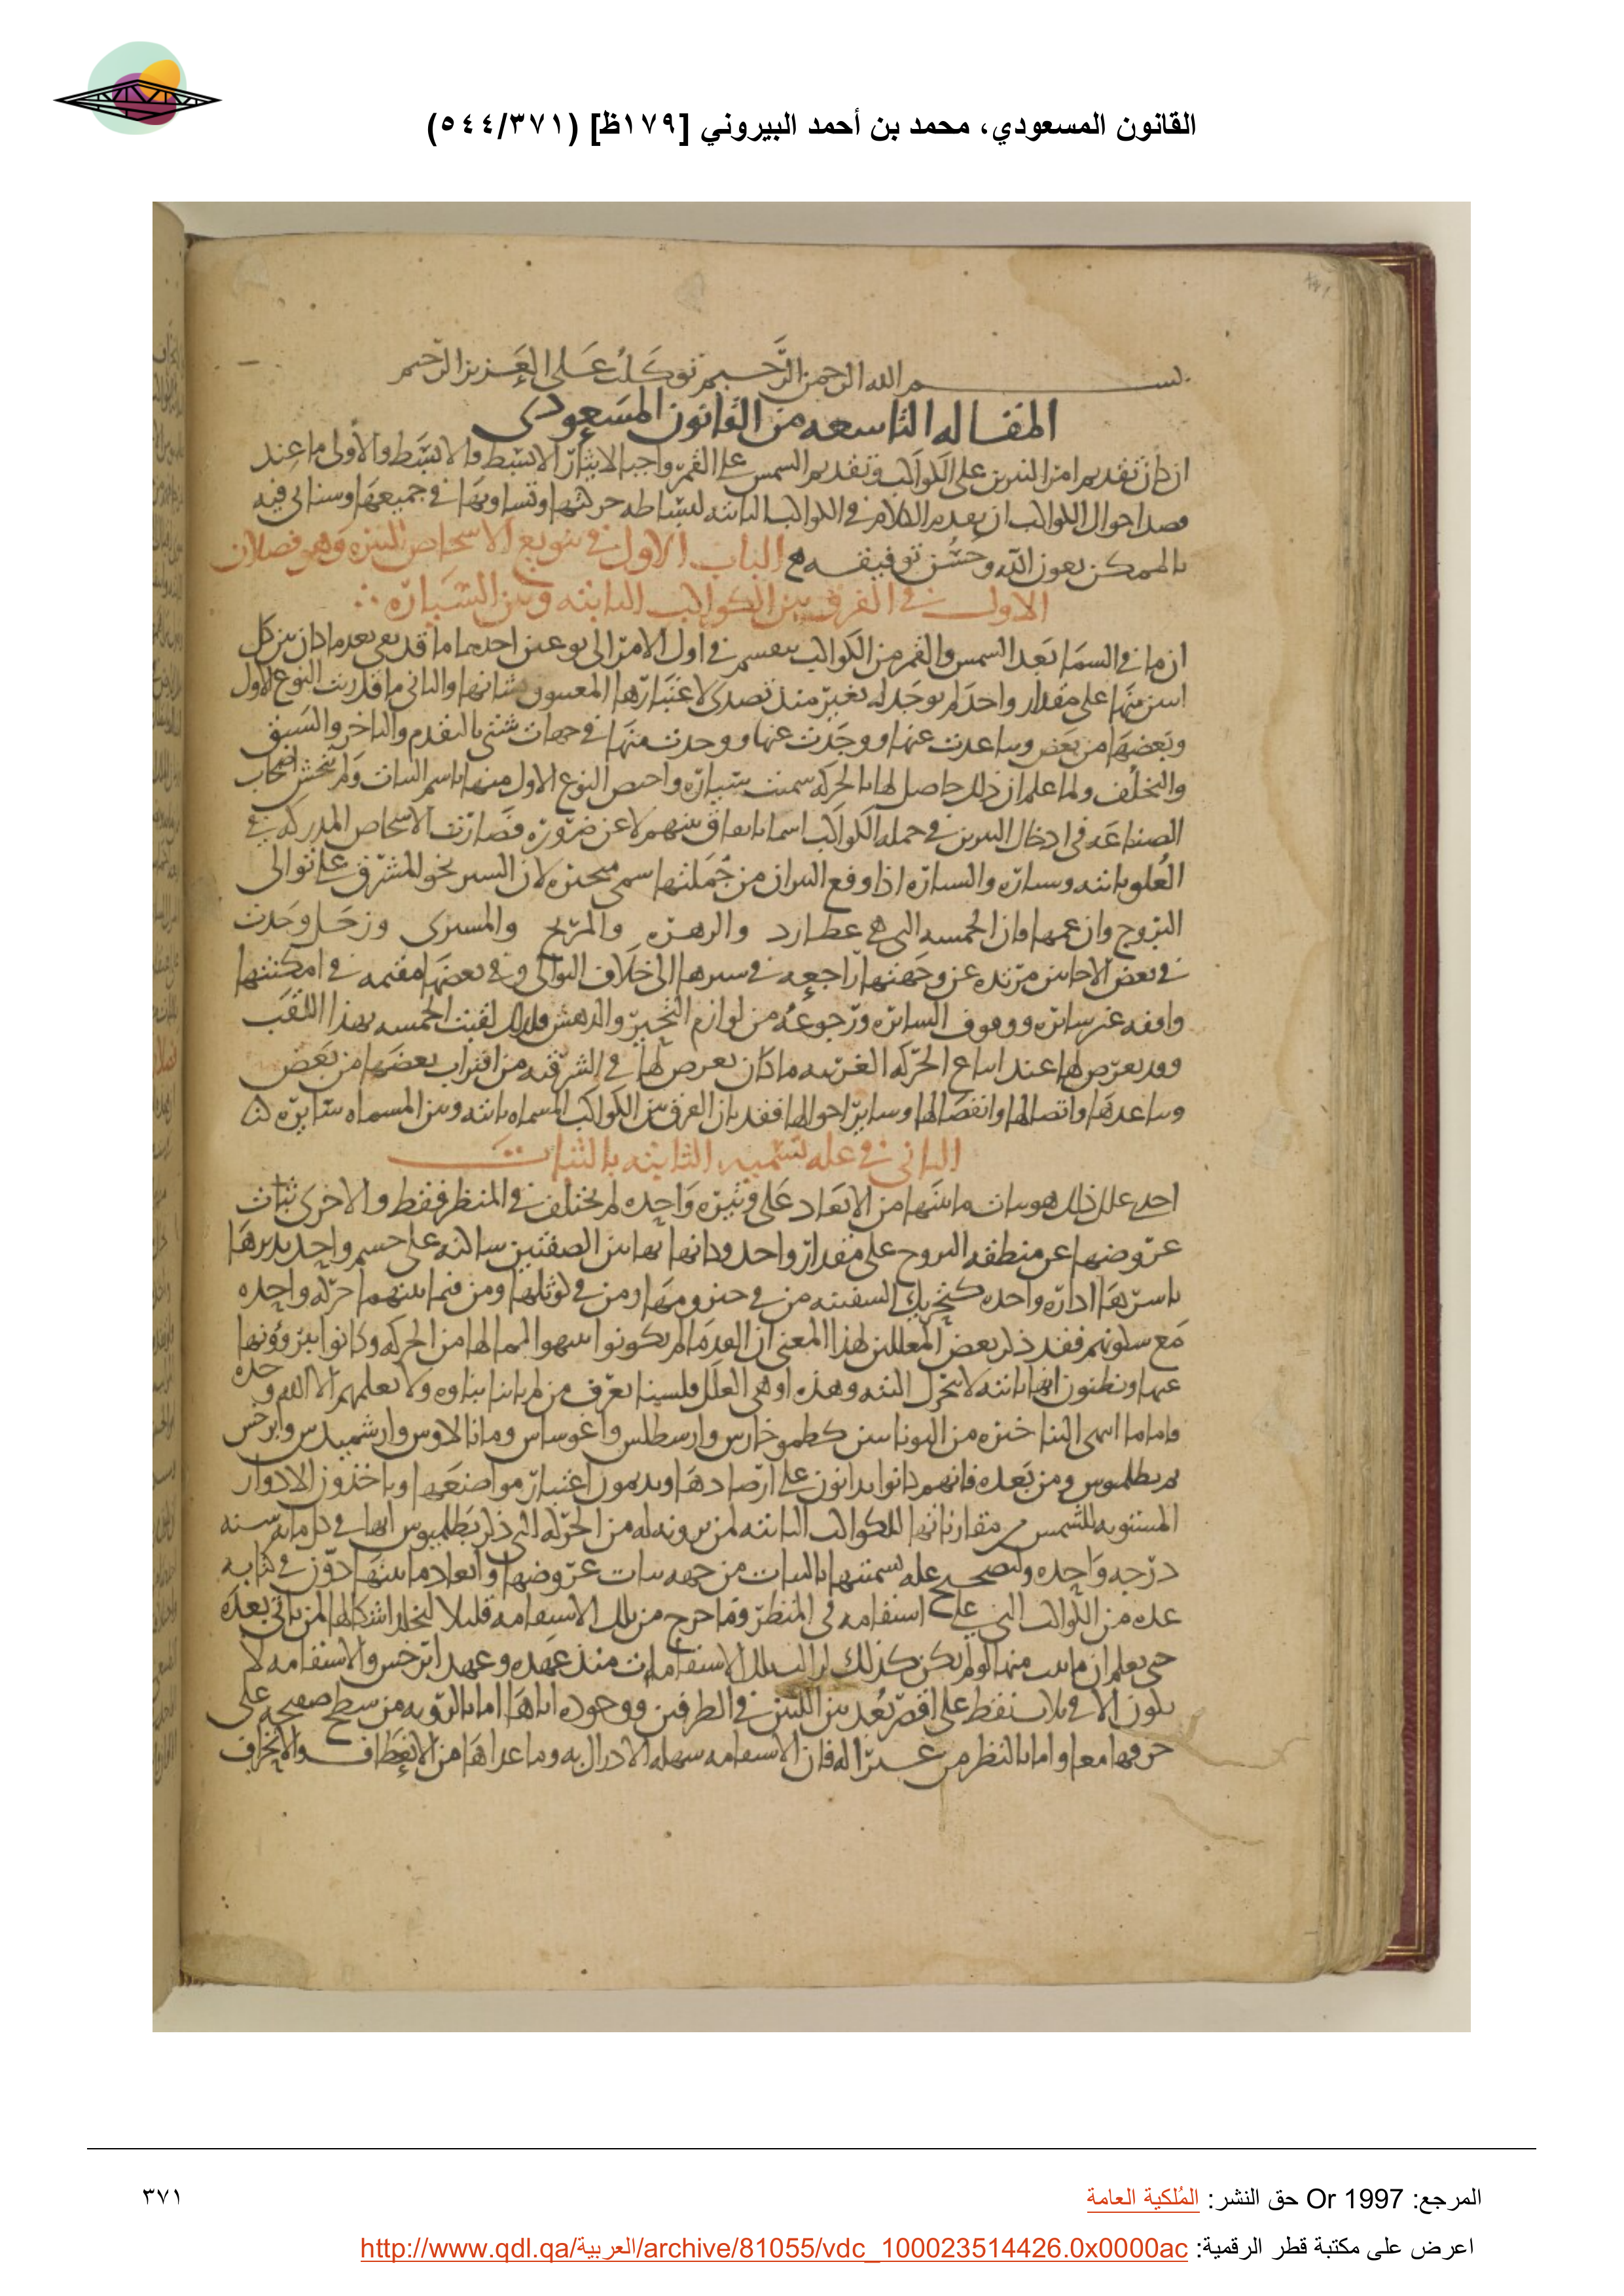 القانون المسعودي، محمد بن أحمد البيروني [١٧٩ظ] (٥٤٤/٣٧١)
بسم الله الرحمن الرحيم توكلت على العزيز الرحيم
المقاله التاسعه من القانون المسعودى
ان كان تقديم امر النيرين على الكواكب وتقديم الشمس على القمر واجبا لايثار الابسط فالابسط والاولى ما عند
قصد احوال الكواكب ان يقدم الكلام فى الكواكب الثابته لبساطه حركتها وتساويها فى جميعها وسناتى فيه
بالممكن بعون الله وحسن توفيقه الباب الاول فى تنويع الاشخاص النيره وهو فصلان
الاول فى الفرق بين الكواكب الثابته وبين السياره
ان ما فى السما بعد الشمس والقمر من الكواكب ينقسم فى اول الامر الى نوعين احدهما ما قد بقى بعد ما كان بين كل
اثنين منها على مقدار واحد لم يوجد له تغير منذ تصدى لاعتبارها المعنيون بشانها والثانى ما قد قربت النوع الاول
وبعضها من بعض وتباعدت عنها ووجدت عنها ووجدت منها فى جهات شتى بالتقدم والتاخر والسبق
والتخلف ولما علم ان ذلك حاصل لها بالحركه سميت سياره واختص النوع الاول منها باسم الثبات ولم يتحش اصحاب
الصناعه فى ادخال النيرين فى جمله الكواكب اسما باتفاق بينهم لا عن ضروره فصارت الاشخاص المدركه فى
العلو ثابته وسياره والسياره اذا وقع النيران من جملتها سمى متحيزه لان السير نحو المشرق على توالى
البروج وان عمها فان الخمسه التى هى عطارد والزهره والمريخ والمشترى وزحل وجدت
فى بعض الاحايين مرتده عن وجهتها راجعه فى سيرها الى خلاف التوالى وفى بعضها مقيمه فى امكنتها
واقفه غير سائره ووقوف السائره ورجوعه من لوازم التحير والدهش فلذلك لقبت الخمسه بهذا اللقب
وقد يعرض لها عند اتباع الحركه الغربيه ما كان يعرض لها فى الشرقيه من اقتراب بعضها من بعض
وتباعدها واتصالها وانفصالها وساير احوالها فقد بان الفرق بين الكواكب المسماه ثابته وبين المسماه سايره
الثانى فى عله تسميه الثابته بالثبات
احدى علل ذلك هو ثبات ما بينها من الابعاد على وتيره واحده لم يختلف فى المنظر فقط والاخرى ثبات
عروضها عن منطقه البروج على مقدار واحد وكانها بهاتين الصفتين ساكنه على جسم واحد يديرها
باسرها اداره واحده كتحريك السفينه من فى حيزومها ومن فى كوثلها ومن فيما بينهما حركه واحده
مع سكونهم فقد ذكر بعض المعللين لهذا المعنى ان القدما لم يكونوا تنبهوا لما لها من الحركه وكانوا يبزوونها
عنها ويظنون انها ثابته لا تتحرك البته وهذه اوهى العلل فلسنا نعرف من لم ياتنا نباوه ولا يعلمهم الا الله وحده
واما ما انتهى الينا خبره من اليونانيين كطيموخارس وارسطلس واغوساس ومانالاوس وارشميدس وابرخس
ثم بطلميوس ومن بعده فانهم كانوا يدانون على ارصادها ويديمون اعتبار مواضعها وياخذون الادوار
المستويه للشمس من مقارناتها للكواكب الثابته لمن يرونه له من الحركه التى ذكر بطلميوس انها فى كل مايه سنه
درجه واحده ولتصحيح عله تسميتها بالثبات من جهه ثبات عروضها وابعاد ما بينها دون فى كتابه
عده من الكواكب التى على استقامه فى المنظر وما خرج من تلك الاستقامه قليلا ليخلد اشكالها لمن ياتى بعده
حتى يعلم ان ما ثبت منها لو لم يكن كذلك لزالت تلك الاستقامات منذ عهده وعهد ابرخس والاستقامه لا
يكون الا فى ثلاث نقط على اقصر بعد بين اللتين فى الطرفين ووجوده اياها اما بالرويه من سطح صفيحه على
حرفها معا واما بالنظر من غير اله فان الاستقامه سهله الادراك به وما عداها من الانعطاف والانحراف
المرجع: Or 1997 حق النشر: المُلكية العامة
٣٧١
اعرض على مكتبة قطر الرقمية: http://www.qdl.qa/العربية/archive/81055/vdc_100023514426.0x0000ac